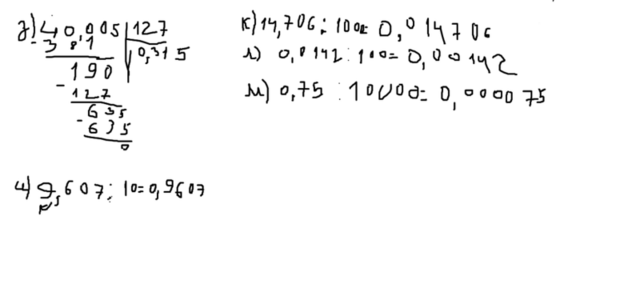 з) 40,005 | 127
- 381 | 0,315
190
- 127
635
- 635
0
и) 9,607 : 10=0,9607
к) 14,706 : 1000= 0,014706
л) 0,0142 : 100= 0,00142
м) 0,75 : 10000= 0,000075